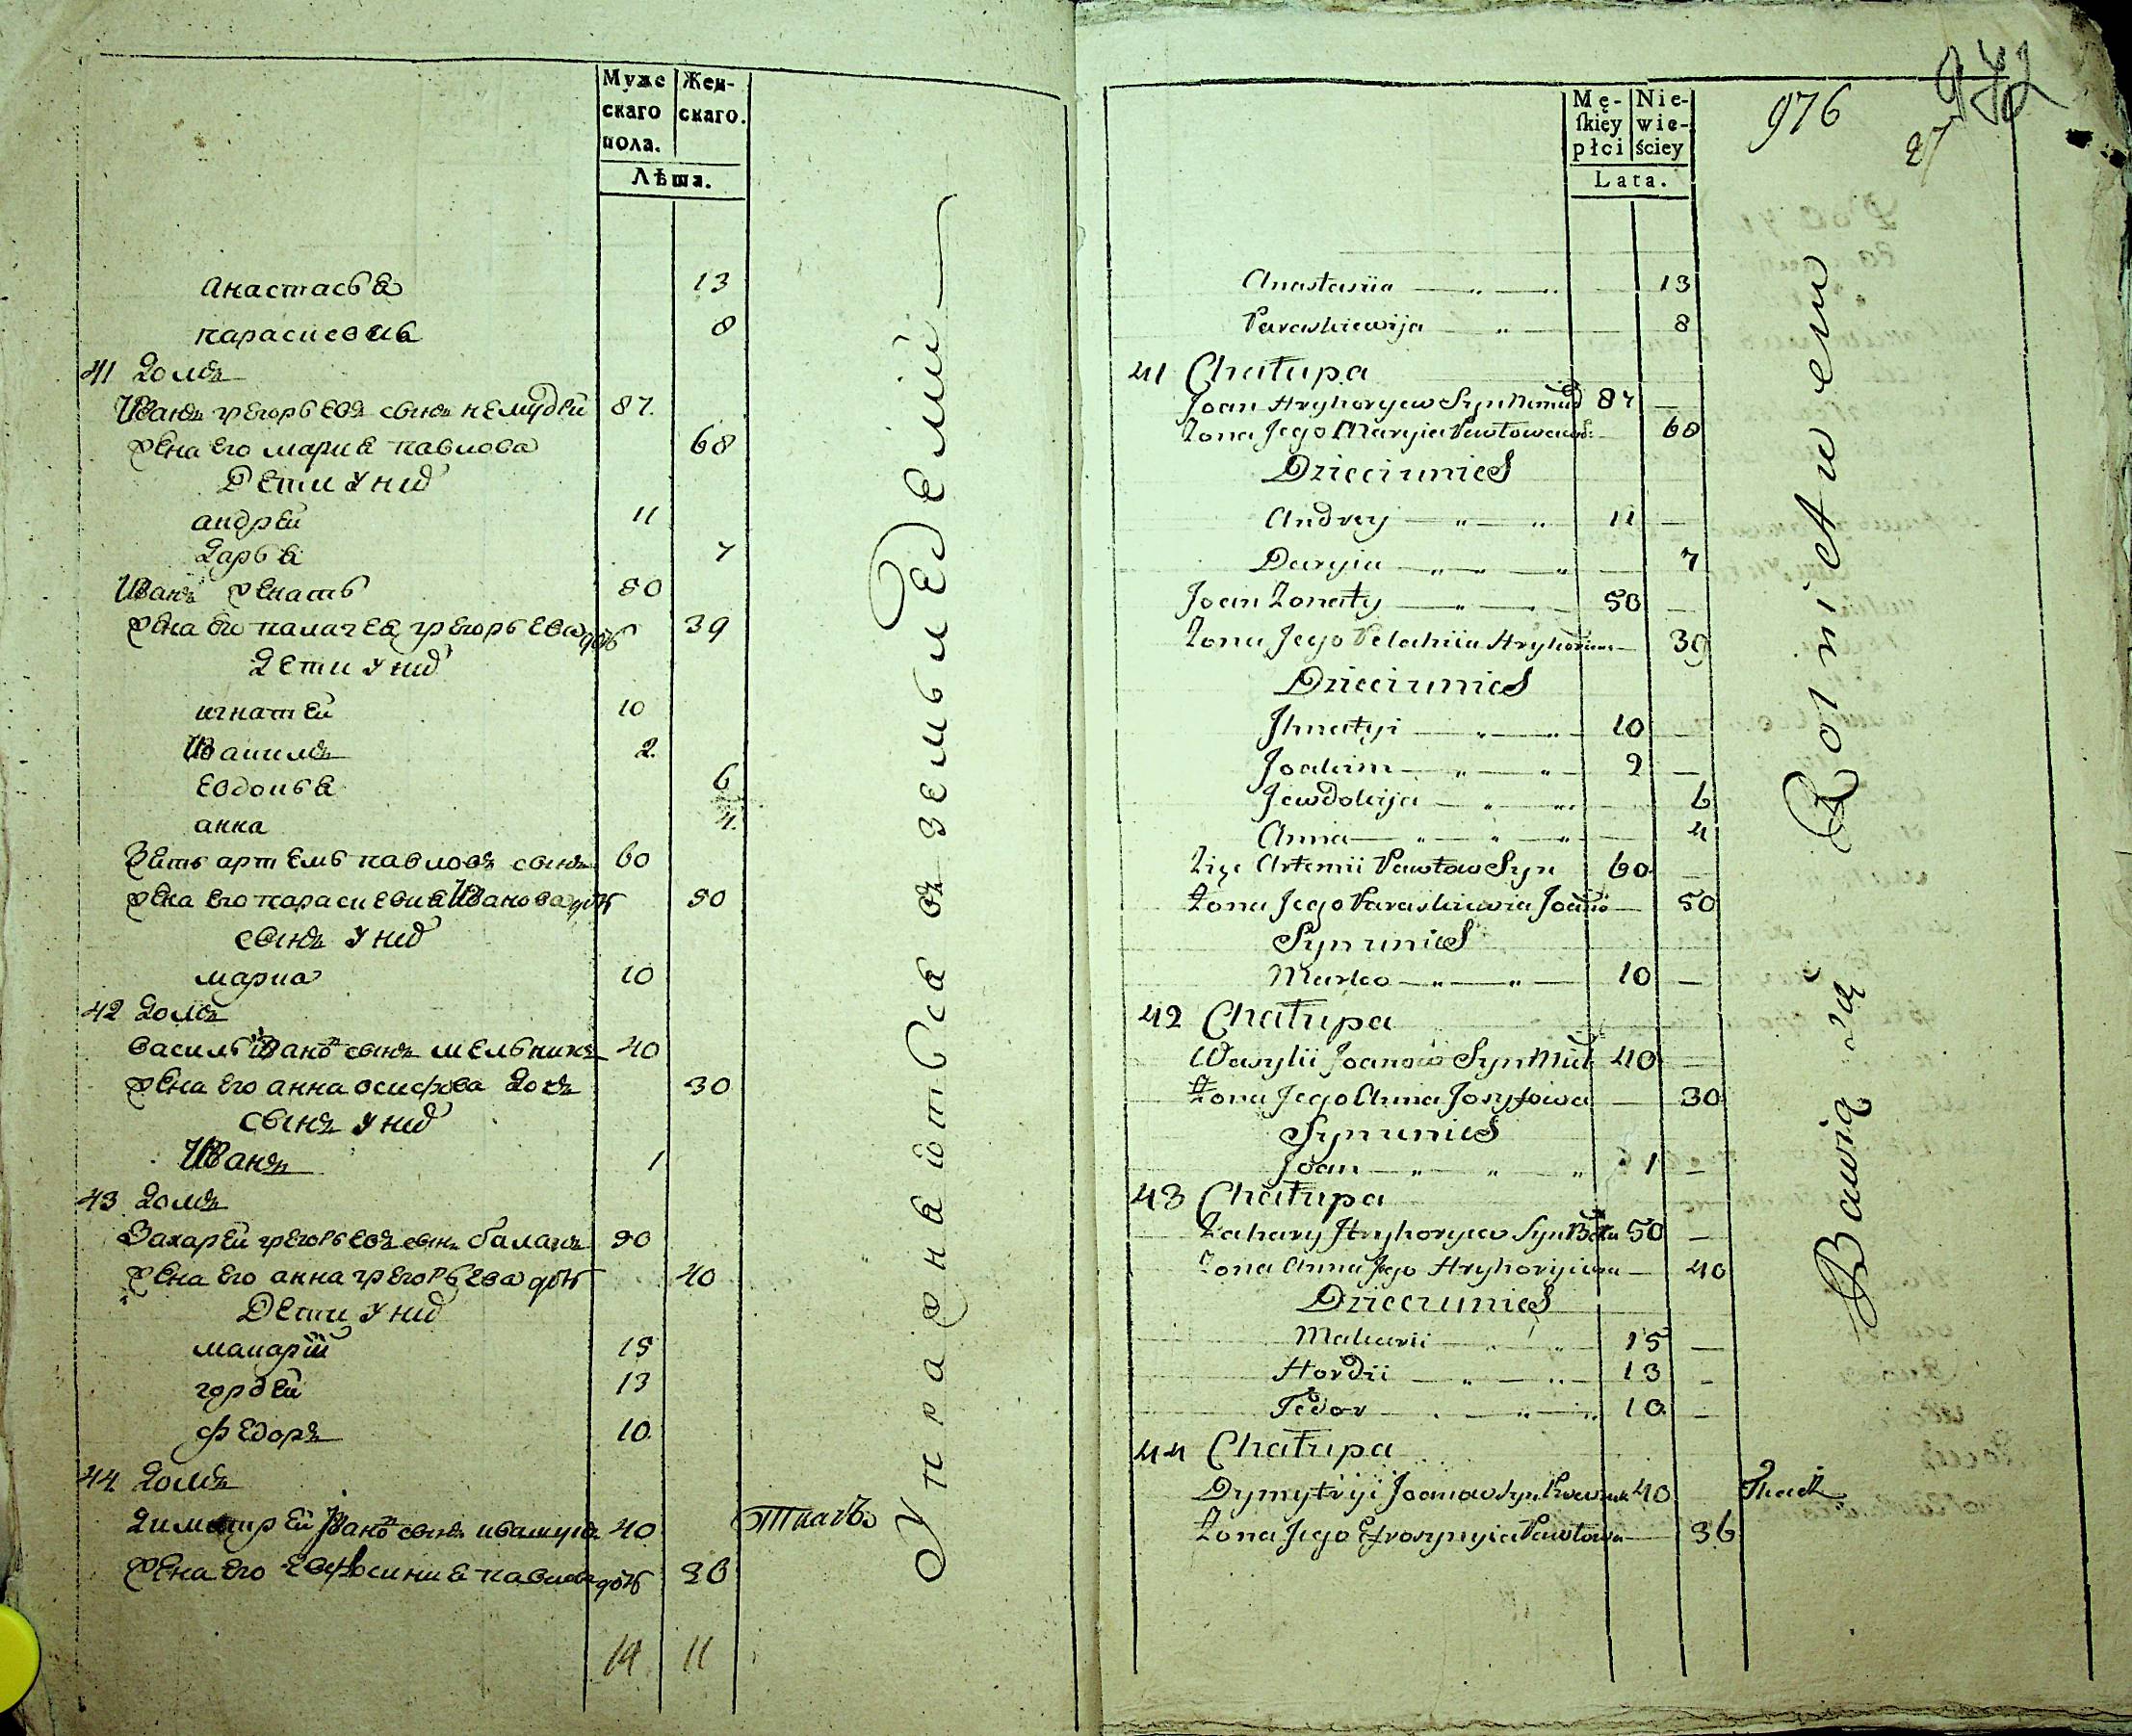 Муже
скаго
пола.
Жен-
скаго.
Лѣта.
анастасьѣ 13
парасковиѣ 8
41 домъ
Иванъ грегорьевъ сынъ немудгй 87
жена его мариѣ павлова 68
дети у них
андрей 11
дарьѣ 7
Иванъ женатъ 50
жена его палагеѣ грегорьева дочь 39
дети у них
игнатей 10
Иоакимъ 2
евдокиѣ 6
анна 4
Зять артемъ павловъ сынъ 60
жена его парасковиѣ Иванова дочь 50
сынъ у них
марко 10
42 домъ
василь Иванов сынъ мельникъ 40
жена его анна осифова дочь 30
сынъ у них
Иванъ 1
43 домъ
Захарей грегорьевъ сынъ 50
жена его анна грегорьева дочь 40
дети у них
макарій 15
гордей 13
федоръ 10
44 домъ
димитрей Иванов сынъ 40 Ткачь
жена его евфросиниѣ павлова дочь 36
14 11
Упражняются в земледелии
Mę-
ſkiey
płci
Nie-
wie-
ściey
Lata.
976
972
27
Anastasiia 13
Paraskiewija 8
41 Chałupa
Joan Hryhoryew Syn 87
Żona Jego Maryia Pawłowa 68
Dzieci u nich
Andrey 11
Daryia 7
Joan Żonaty 50
Żona Jego Pelahiia Hryhor 39
Dzieci u nich
Jhnatyi 10
Joakim 2
Jewdokija 6
Anna 4
Zięć Artemii Pawłow Syn 60
Żona Jego Paraskiewia Joano 50
Syn u nich
Marko 10
42 Chałupa
Wasylii Joanow Syn Mul 40
Żona Jego Anna Josyfowa 30
Syn u nich
Joan 1
43 Chałupa
Zahary Hryhoryew Syn 50
Żona Anna Jego Hryhoryiewa 40
Dzieci u nich
Makarii 15
Hordii 13
Fedor 10
44 Chałupa
Dymytryi Joanow Syn 40 Tkacz
Żona Jego Efrosynyia Pawłowa 36
Bawią się Rolnictwem